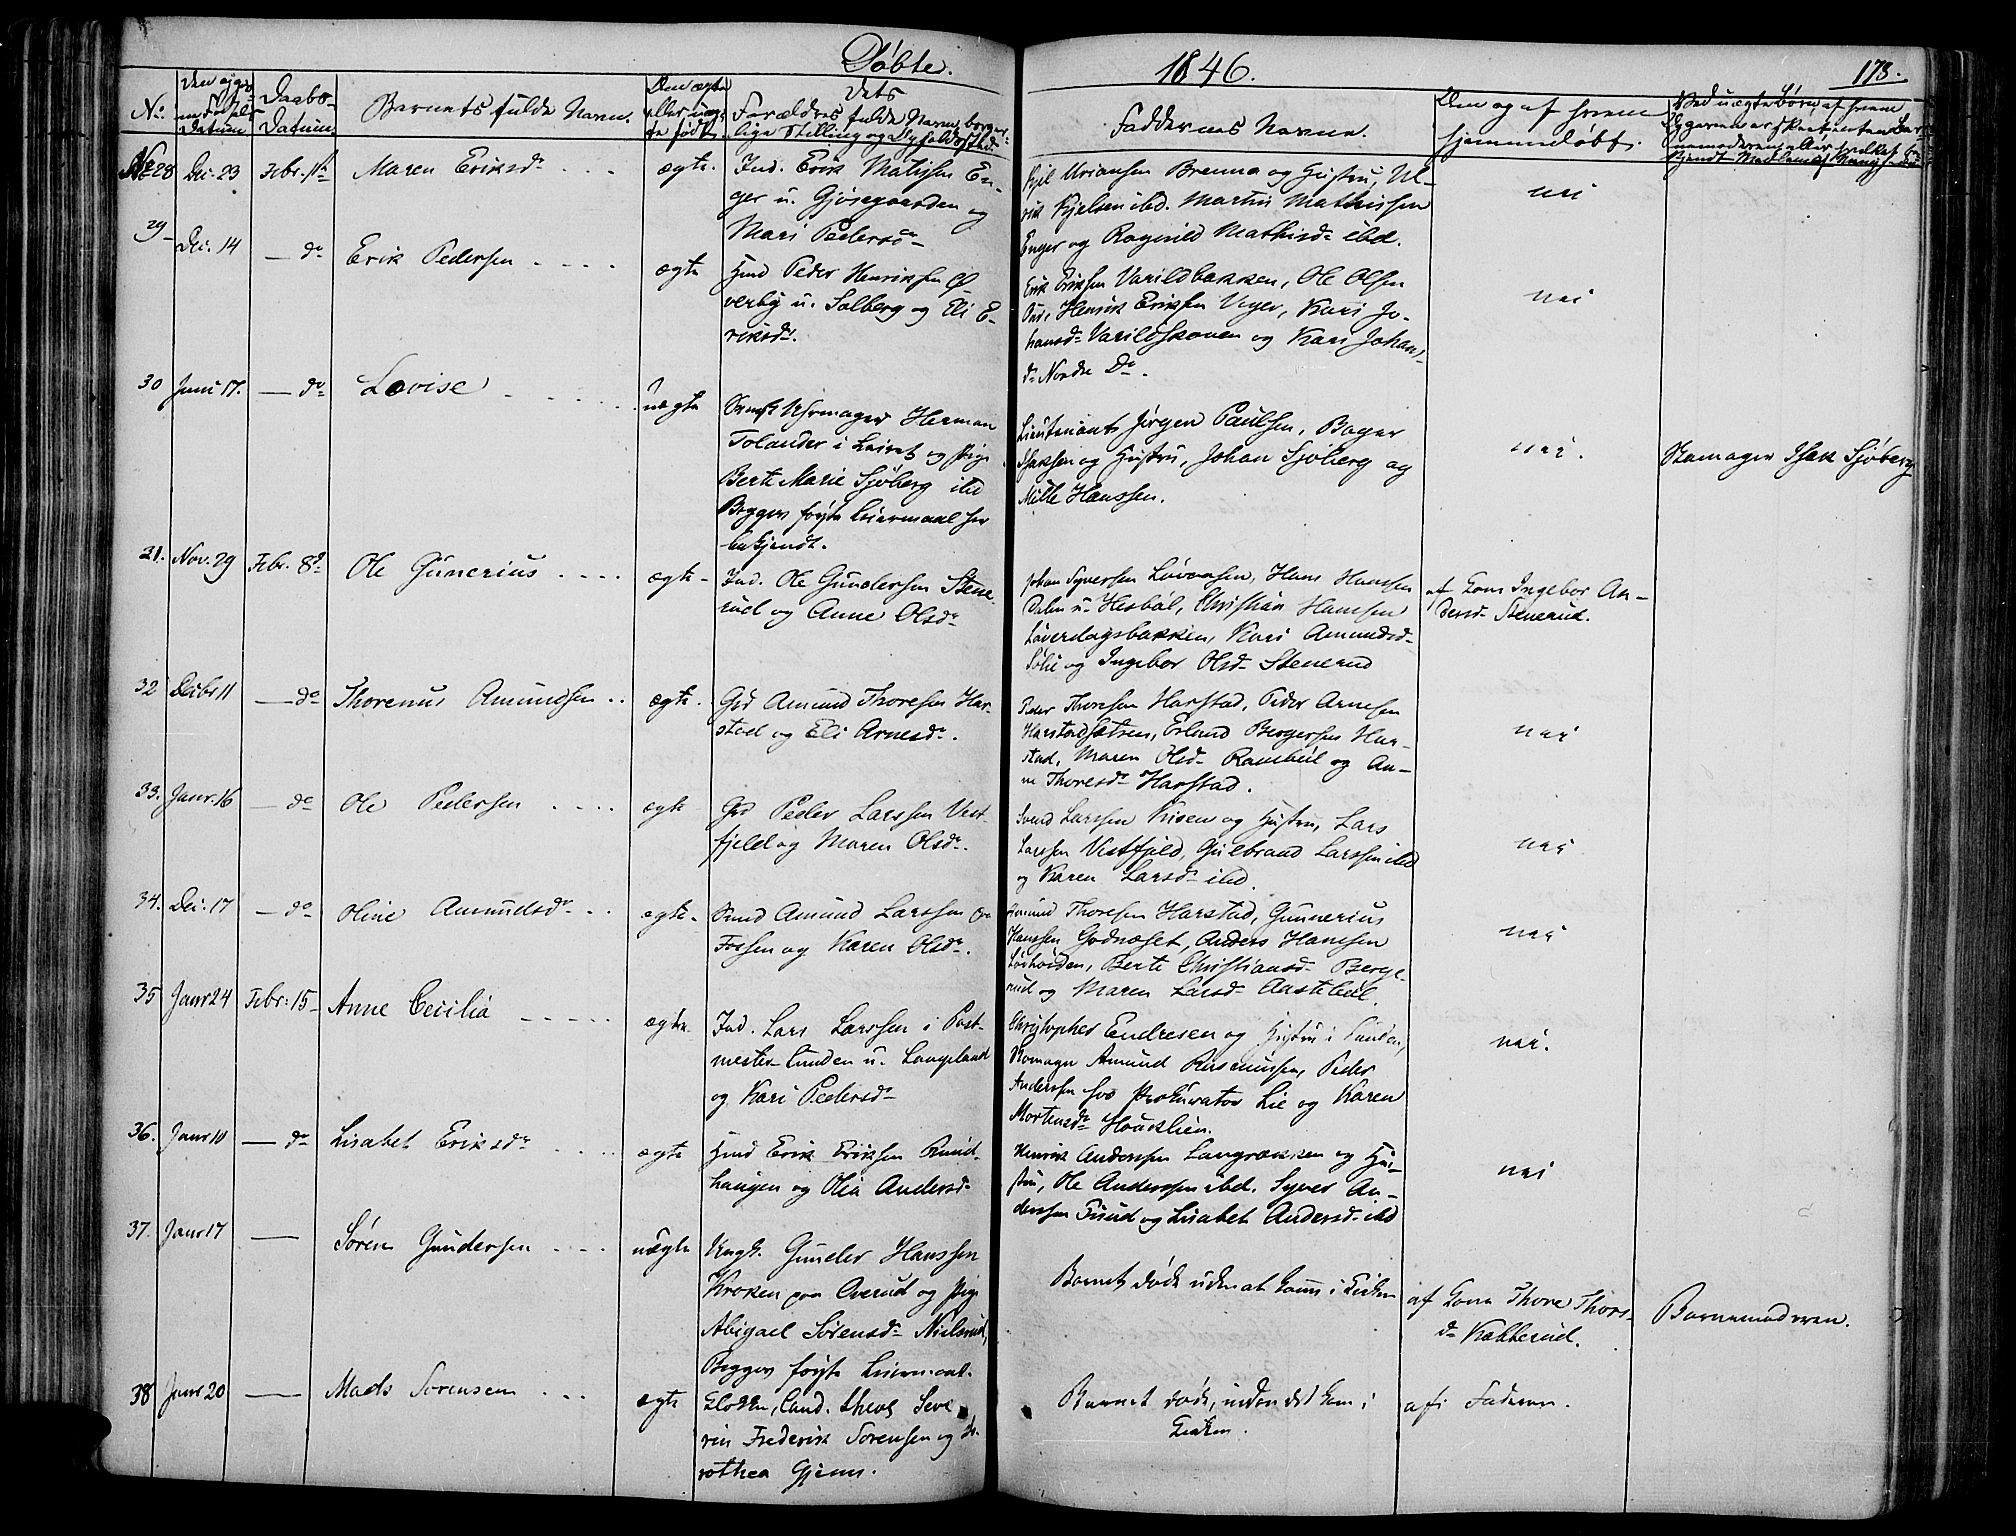 Døbte.
1846.
173.
No.
Daabs-
Datum
Datum.
Barnets fulde Navn.
Den ægte
eller uæg-
te født.
Dets
Forældres fulde Navn, borger-
lige Stilling og Opholdssted.
Faddernes Navne.
Om og af hvem
hjemmedøbt.
No 28 Dec. 23 Febr. 1ste Maren Eriksdr ægte. Ind. Erik Mathisen En-
ger u. Gjøsegaarden og
Mari Pedersdr
Kjel Uriansen Brenna og Hustru, Ul-
rik Kjelsen ibd. Martin Mathissen
Enger og Ragnild Mathisdr ibd.
nei
29 Dec. 14 — do Erik Pedersen ægte Hmd Peder Henriksen Ø-
verby u. Solberg og Eli E-
riksdr.
Erik Eriksen Varildbakken, Ole Olsen
Rud, Henrik Eriksen Unger, Kari Jo-
hansdr Varildskoven og Kari Johans
dr Nordre Do.
nei
30 Juni 17. — do Lovise uægte Svensk Uhrmager Herman
Tolander i Leiret og Pige
Berte Marie Sjøberg ibd
Begges første Leiermaal saa
bekjendt.
Lieutenant Jørgen Paulsen, Bager
Isaksen og Hustru, Johan Sjøberg og
Mille Hanssen.
nei.
Skomager Isak Sjøberg
31. Nov. 29 Febr. 8de Ole Gunerius ægte Ind. Ole Gundersen Stene-
rud og Anne Olsdr
Johan Syversen Løvaasen, Hans Hanssen
Dalen u. Hesbøl, Christian Hanssen
Løverdagsbakken, Kari Amundsdr
Sølie og Ingebor Olsdr Stenerud
af Gom Ingebor An-
dersdr Stenerud.
32 Decbr 11 — do Thorenus Amundsen ægte. Grd Amund Thoresen Har-
stad og Eli Arnesdr.
Peder Thoresen Harstad, Peder Arnesen
Harstadsætren, Erland Bergersen Har-
stad, Maren Olsdr Rambøl og An-
ne Thoresdr Harstad.
nei
33. Janr. 16 — do Ole Pedersen ægte Grd Peder Larssen Vest-
fjeld og Maren Olsdr.
Svend Larssen Krisen og Hustru, Lars
Larssen Vestfjeld, Gulbrand Larssen ibd
og Karen Larsdr ibd.
nei
34. Dec. 17 — do Oline Amundsdr ægte. Smed Amund Larssen
Fossen og Karen Olsdr.
Amund Thoresen Harstad, Gunnerius
Hanssen Godnæset, Anders Hanssen
Løvhoiden, Berte Christiansdr Berge-
rud og Maren Larsdr Aastebøl.
nei
35 Janr 24 Febr: 15 Anne Cecilia ægte. Ind. Lars Larssen i Post-
mester Lunden u. Langeland
og Kari Pedersdr
Christopher Endresen og Hustru i Lunden,
Skomager Amund Rasmussen, Peder
Andersen hos Prokurator Lie og Karen
Mortensdr Haugslien.
nei.
36. Janr 10 — do Lisabet Eriksdr ægte Hmd Erik Eriksen Rund-
haugen og Olia Andersdr
Henrik Anderssen Langrækken og Hu-
stru, Ole Anderssen ibd. Syver An-
derssen Tisud og Lisabet Andersdr ibd
nei
37. Janr 17 — Søren Gundersen uægte Ungk. Gunder Hanssen
Kroken paa Overud og Pige
Abigael Sørensdr Nielsrud,
Begges første Leiermaal.
Barnet døde uden at komme i Kirken
af Gom Thore Thors-
dr Kobberud.
Barnemoderen.
38 Janr 20 — Mads Sørensen ægte Klokker, Cand. theol Seve-
rin Frederik Sørensen og Do-
rothea Gjems.
Barnet døde, inden det kom i
Kirken.
af Faderen.